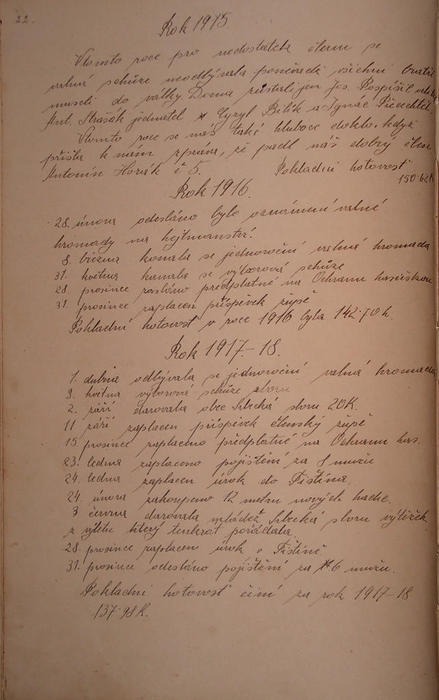 22.
Rok 1915
V tomto roce pro nedostatek členu se
valná schůze neodbývala poněvadž všichni bratři
museli do války. Doma zůstali jen Jos. Pospíšil
Ant. Strašák jednatel a Cyryl Bílík a Ignác
V tomto roce se nás také hluboce dotklo, když
přišla k nám zpráva, že padl náš dobrý člen
Antonín Horák č 5. Pokladní hotovost
150·62
Rok 1916.
28. února odesláno bylo oznámení valné
hromady na hejtmanství.
8. března konala se jednoroční valná hromada
31. května konala se výborová schůze
28. prosince zasláno předplatné na Ochranu hasičskou
31. prosince zaplacen příspěvek župě
Pokladní hotovost v roce 1916 byla 142·70 h.
Rok 1917-18.
1. dubna odbývala se jednoroční valná hromada
9. května výborová schůze sboru
2. září darovala obec Srbecká sboru 20K.
11 září zaplacen příspěvek členský župě
15 prosince zaplaceno předplatné na Ochranu has.
23. ledna zaplaceno pojištění za 8 mužů
24. ledna zaplacen úrok do Tištína.
24. února zakoupeno 12 metru nových hadic.
3 června darovala mládež Srbecká sboru výtěžek
z který tenkrát pořádala.
28. prosince zaplacen úrok v Tištíně
31. prosince odesláno pojištění za 6 mužu.
Pokladní hotovost činí za rok 1917-18
137·98K.